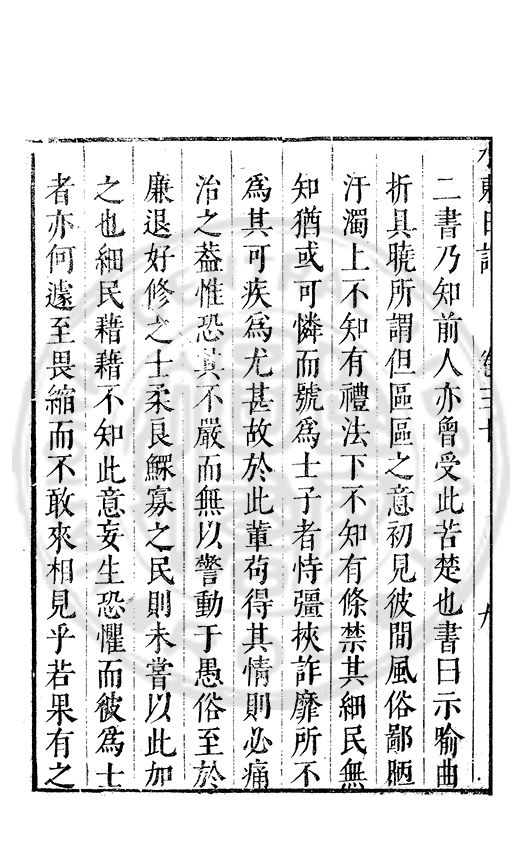 水東日記　卷三十　九
二書乃知前人亦曾受此苦楚也書曰示喻曲
折具曉所謂但區區之意初見彼間風俗鄙陋
汙濁上不知有禮法下不知有條禁其細民無
知猶或可憐而號爲士子者恃彊挾詐靡所不
爲其可疾爲尤甚故於此輩苟得其情則必痛
治之蓋惟恐其不嚴而無以警動于愚俗至於
廉退好修之士柔良鰥寡之民則未嘗以此加
之也細民藉藉不知此意妄生恐懼而彼爲士
者亦何遽至畏縮而不敢來相見乎若果有之